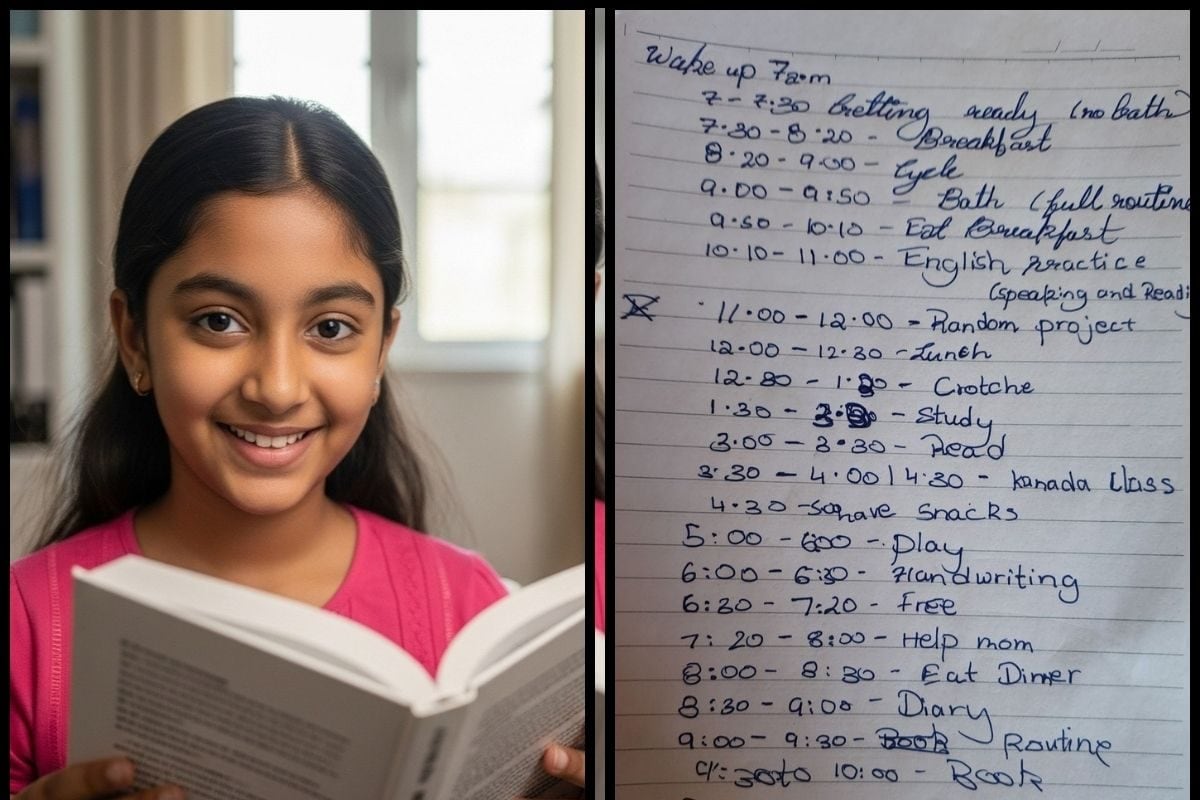 Wake up 7a.m
7 - 7:30 Getting ready (no bath)
7.30 - 8.20 - Breakfast
8.20 - 9.00 - Cycle
9.00 - 9:50 - Bath (full routine
9.50 - 10.10 - Eat Breakfast
10.10 - 11.00 - English practice
(speaking and Readi
11.00 - 12.00 - Random project
12.00 - 12.30 - Lunch
12.30 - 1.30 - Crotche
1.30 - - Study
3.00 - 3.30 - Read
3.30 - 4.00 | 4.30 - kanada Class
4.30 - have snacks
5:00 - 6:00 - play
6:00 - 6:30 - Handwriting
6:30 - 7:20 - Free
7:20 - 8:00 - Help mom
8:00 - 8:30 - Eat Dinner
8:30 - 9:00 - Diary
9:00 - 9:30 - Book Routine
to 10:00 - Book